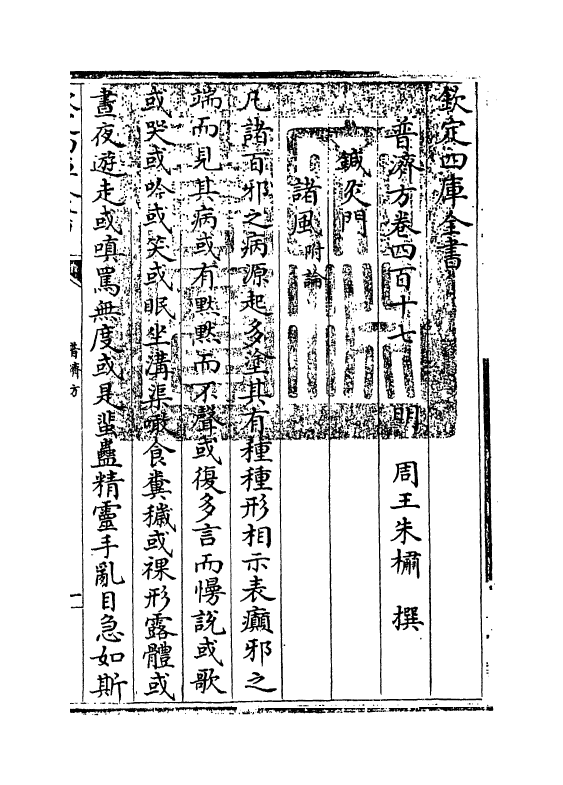 欽定四庫全書
普濟方卷四百十七　明　周王朱橚　撰
鍼灸門
諸風附論
凡諸百邪之病源起多塗其有種種形相示表癲邪之
端而見其病或有黙黙而不聲或復多言而慢說或歌
或哭或吟或笑或眠坐溝渠噉食糞穢或裸形露體或
晝夜遊走或嗔罵無度或是蜚蠱精靈手亂目急如斯
普濟方
一